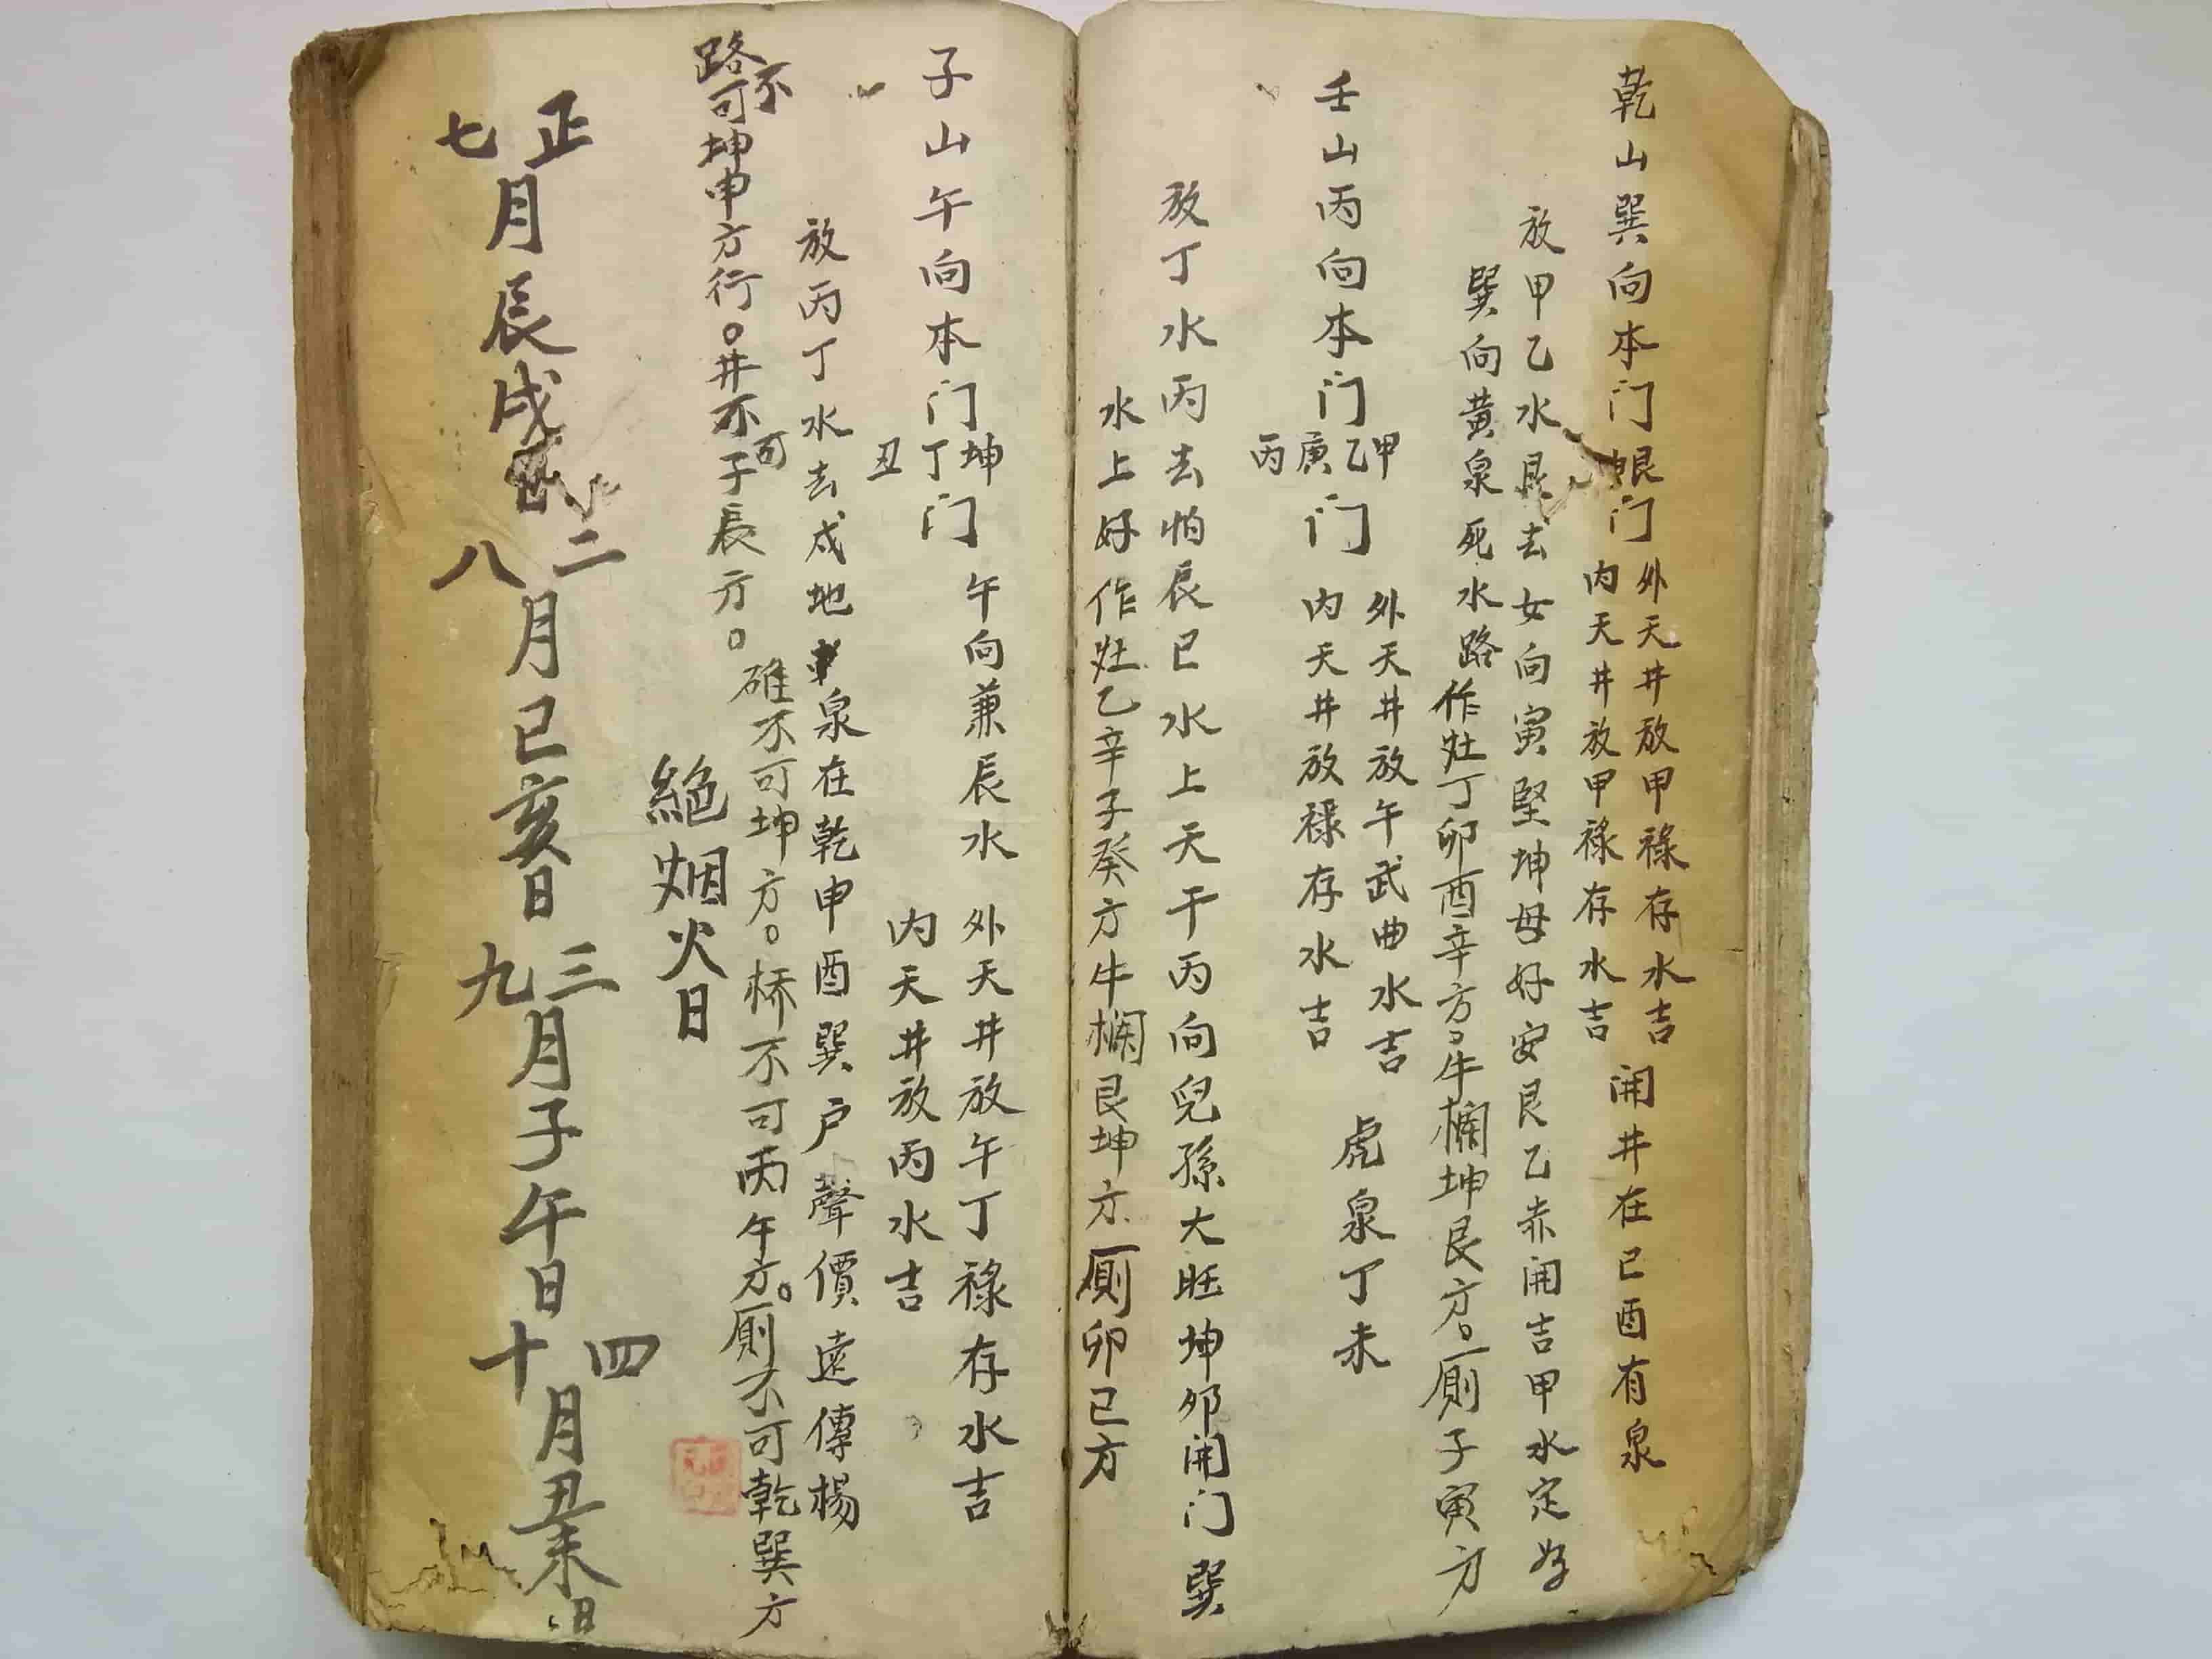 乾山巽向本门艮门
外天井放甲祿存水吉
内天井放甲祿存水吉
開井在已酉有泉
放甲乙水艮去女向寅堅坤母好安艮乙赤開吉甲水定好
巽向黄泉死水路
作灶丁卯酉辛方。牛欄坤艮方。厠子寅方
壬山丙向本门甲乙庚丙门
外天井放午武曲水吉
内天井放祿存水吉
虎泉丁未
放丁水丙去怕辰已水上天干丙向兒孫大旺坤卯開门巽
水上好
作灶乙辛子癸方牛欄艮坤方厠卯已方
子山午向本门坤丁丑门
午向兼辰水
外天井放午丁祿存水吉
内天井放丙水吉
放丙丁水去戍地泉在乾申酉巽户聲價遠傳楊
碓不可坤方。桥不可丙午方。厠不可乾巽方
路不可坤申方行。井不可子辰方。
絕烟火日
正七月辰戍日
二八月已亥日
三九月子午日
四十月丑未日